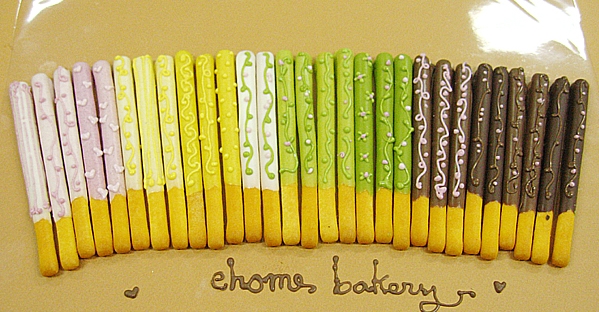 ehomes bakery